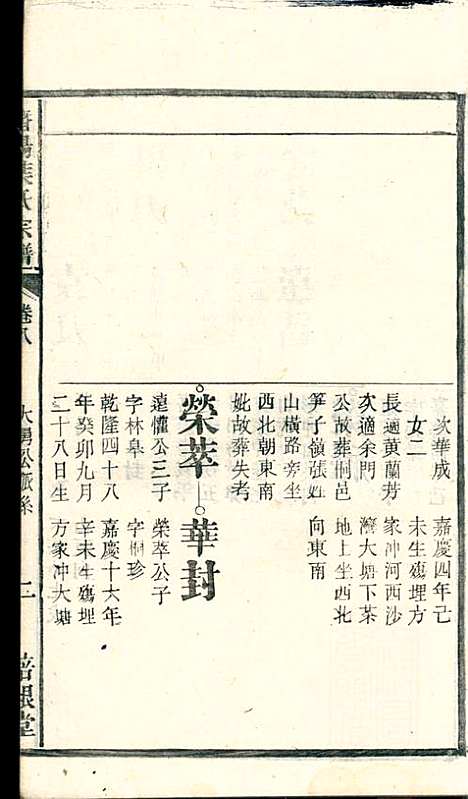 次華成
女二
長適黃蘭芳
次適余門
公故葬桐邑
笋子嶺張姓
山橫路旁坐
西北朝東南
妣故葬失考
榮萃
遠懽公三子
字林阜
乾隆四十八
年癸卯九月
二十八日生
嘉慶四年己
未生殤埋方
家冲河西沙
灣大塘下茶
地上坐西北
向東南
華封
榮萃公子
字桐珍
嘉慶十六年
辛未生殤埋
方家冲大塘
陽葉氏宗譜
卷八
公派系
二